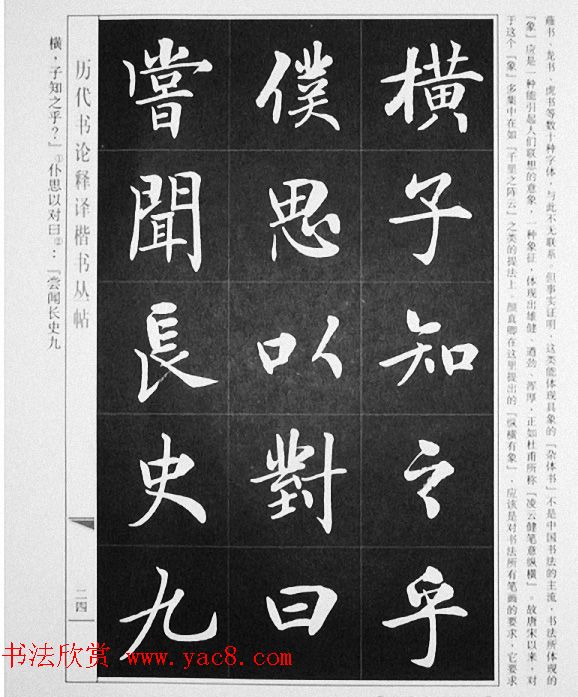 蘸书、龙书、虎书等数十种字体，与此不无联系。但事实证明，这类能体现具象的『杂体书』不是中国书法的主流，书法所体现的
『象』应是一种能引起人们联想的意象，一种象征，体现出雄健、遒劲、浑厚，正如杜甫所称『凌云健笔意纵横』。故唐宋以来，对
于这个『象』多集中在如『千里之阵云』之类的提法上。颜真卿在这里提出的『纵横有象』，应该是对书法所有笔画的要求，它要求
橫子知之乎
僕思以對曰
嘗聞長史九
历代书论释译楷书丛帖
二四
横，子知之乎？』①仆思以对曰②：『尝闻长史九
书法欣赏 www.yac8.com